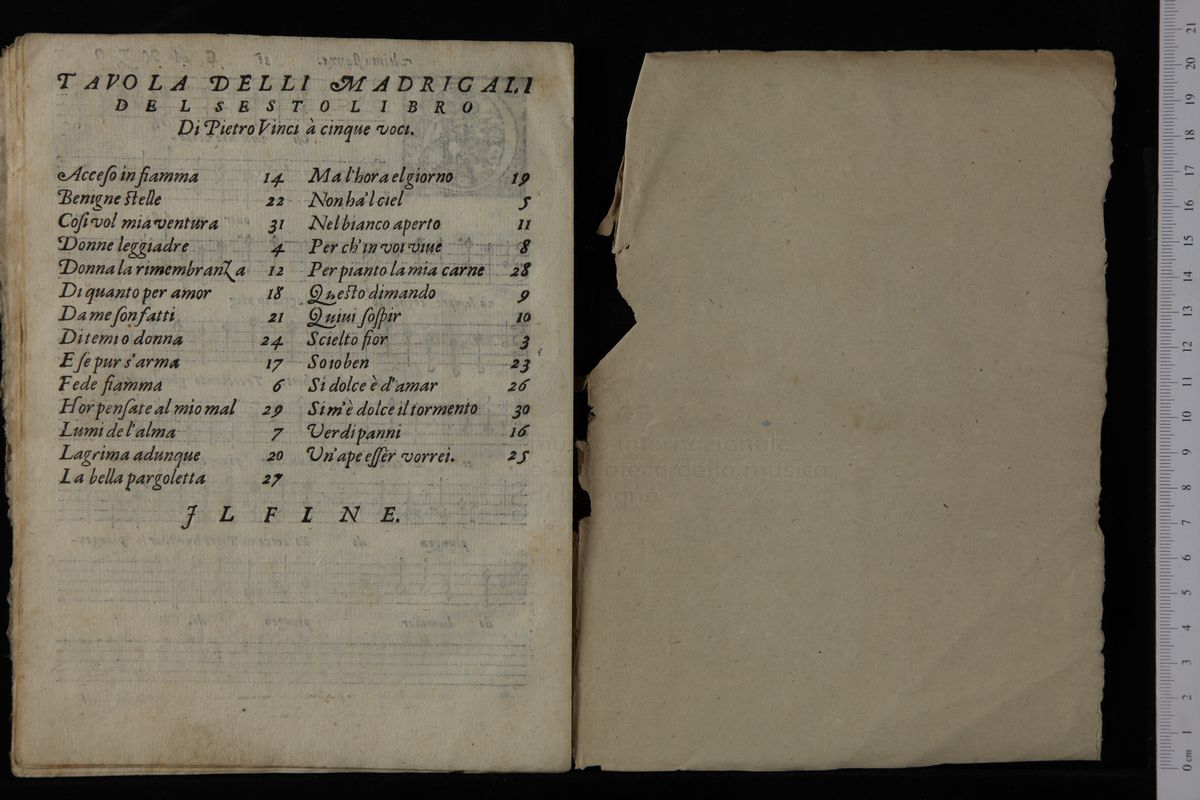 TAVOLA DELLI MADRIGALI
DEL SESTO LIBRO
Di Pietro Vinci à cinque voci.
Acceſo in fiamma 14
Benigne ſtelle 22
Coſi vol mia ventura 31
Donne leggiadre 4
Donna la rimembranza 12
Di quanto per amor 18
Da me ſon fatti 21
Ditemi o donna 24
E ſe pur s'arma 17
Fede fiamma 6
Hor penſate al mio mal 29
Lumi de l'alma 7
Lagrima adunque 20
La bella pargoletta 27
Ma l'hora el giorno 19
Non ha'l ciel 5
Nel bianco aperto 11
Per ch'in voi viue 8
Per pianto la mia carne 28
Queſto dimando 9
Quiui ſoſpir 10
Scielto fior 3
So io ben 23
Si dolce è d'amar 26
Si m'è dolce il tormento 30
Verdi panni 16
Vn'ape eſſer vorrei. 25
IL FINE.